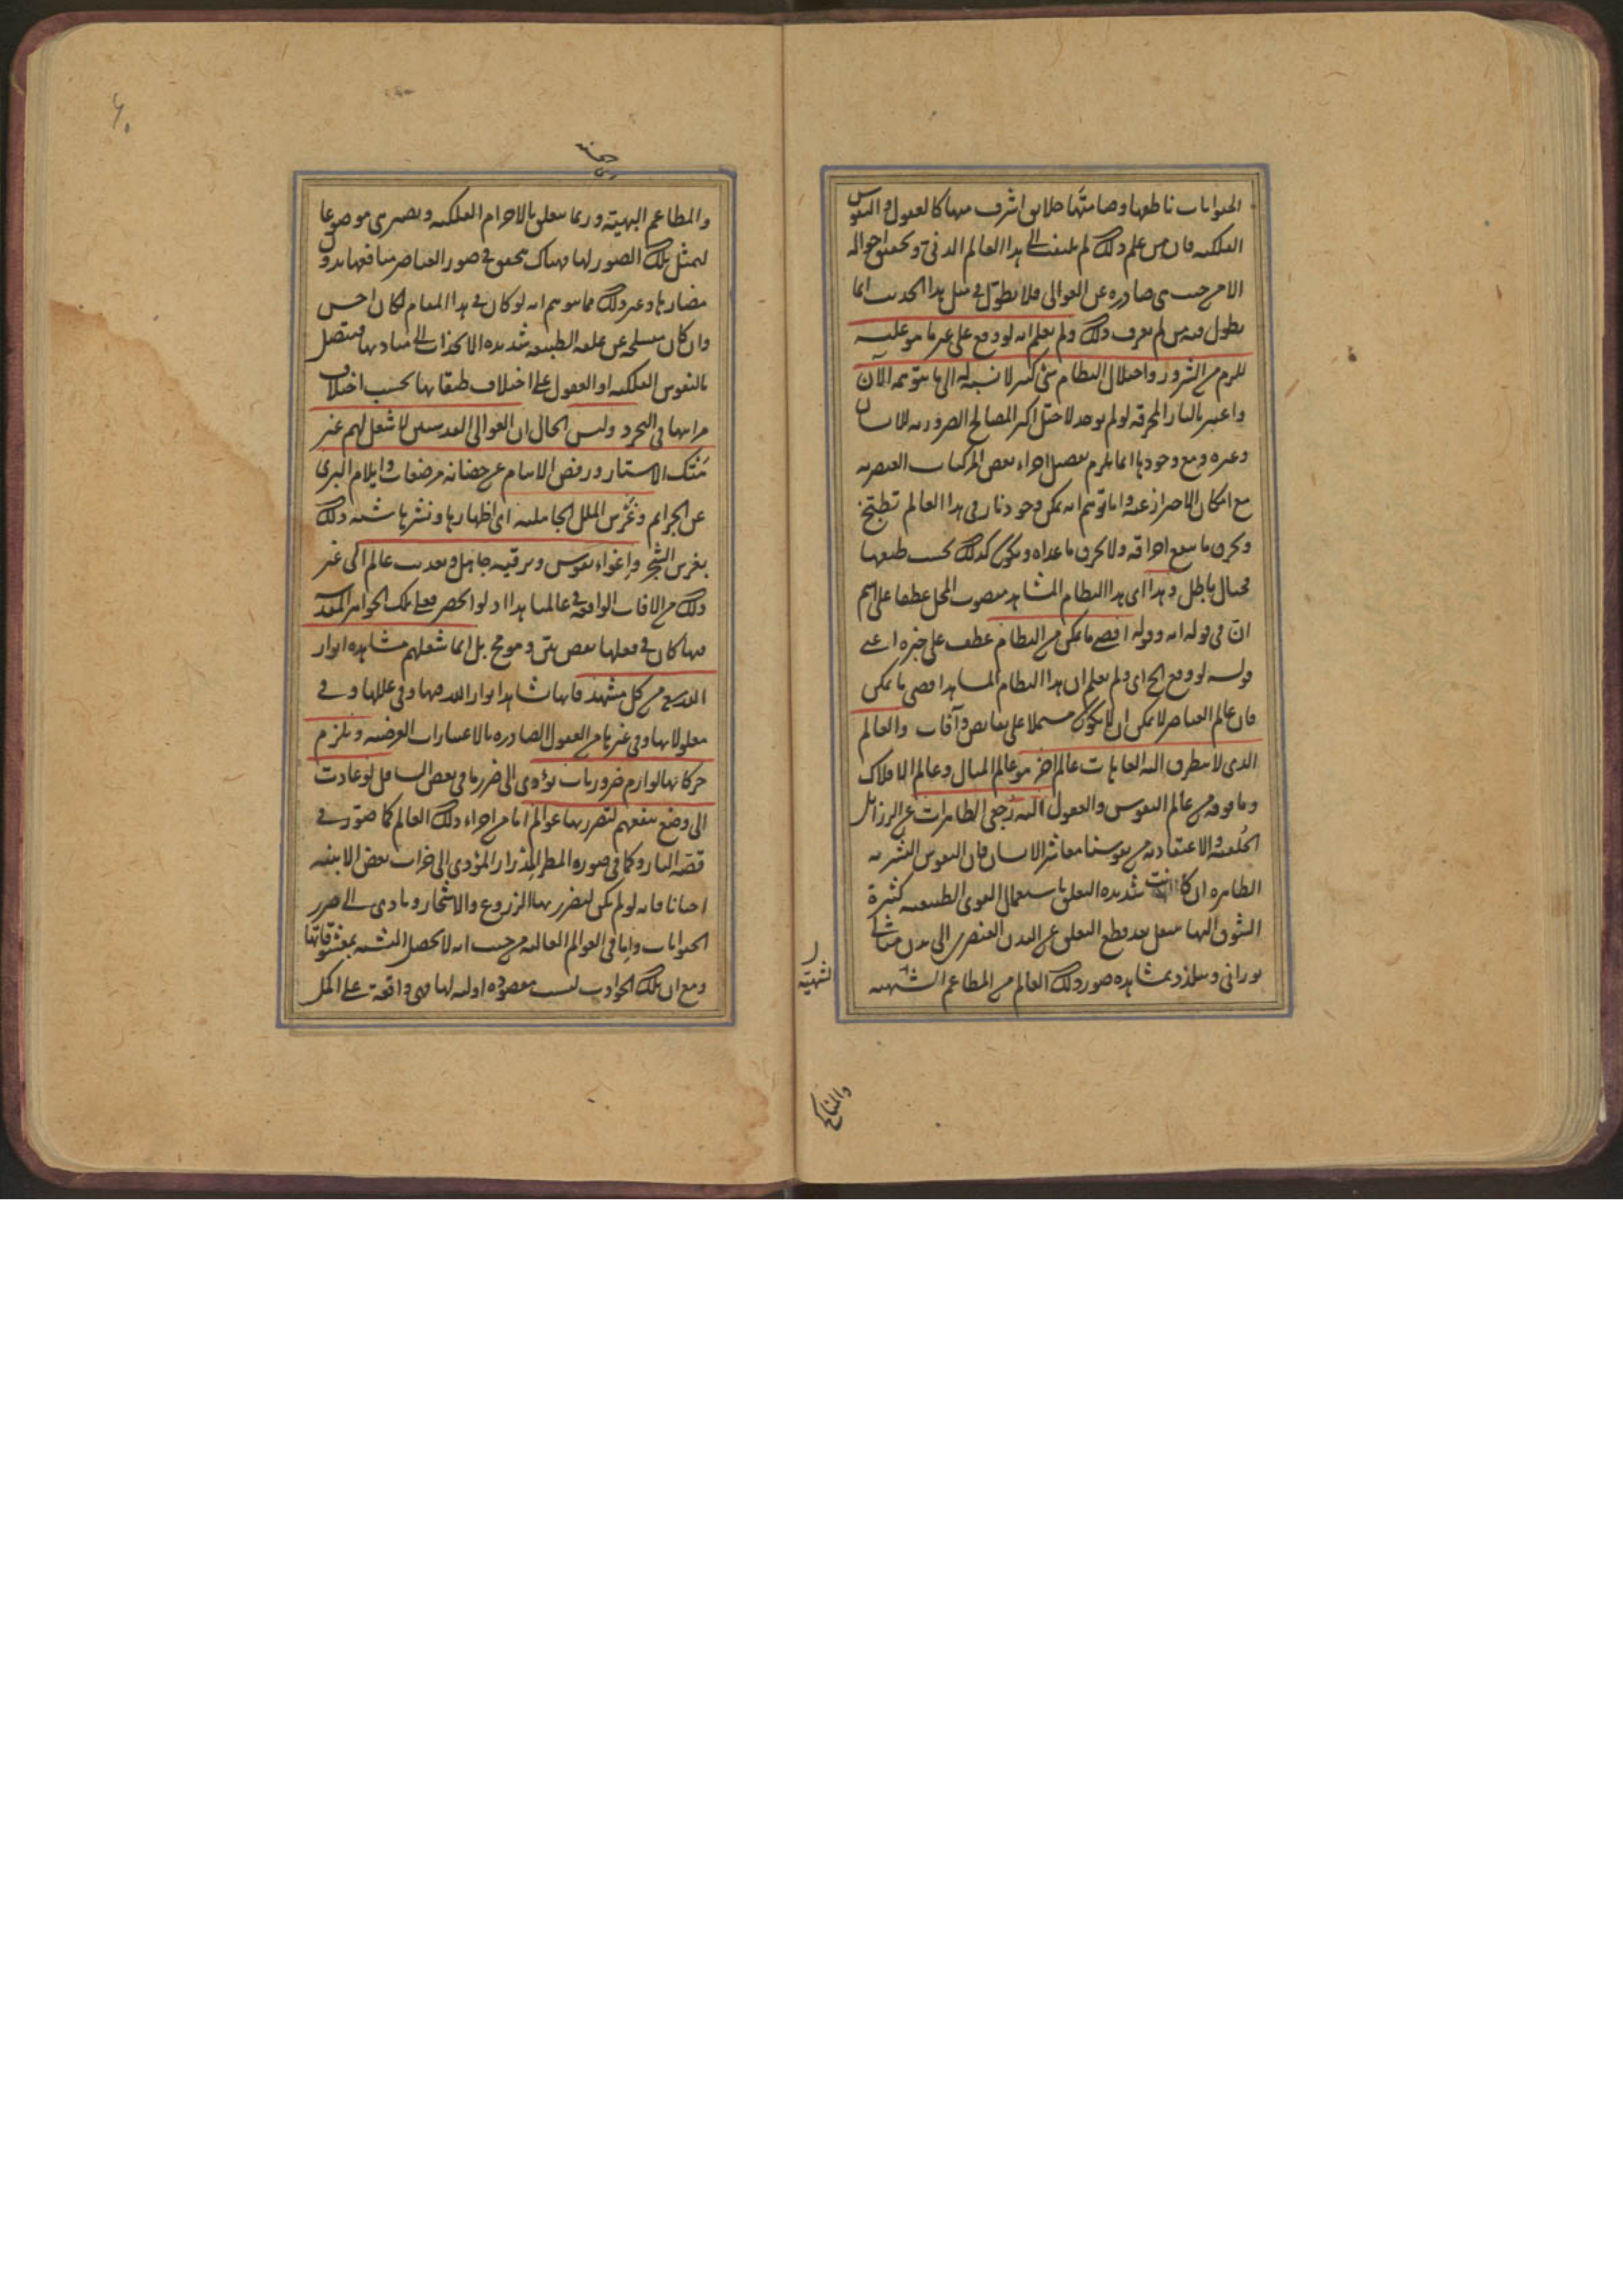 الحيوانات ناطقها وصامتها خلائق اشرف منها كالعقول والنفوس
الفلكيه فان من علم ذلك لم يلتفت الى هذا العالم الدنى وتحقيق احواله
الا من حيث هى صادره عن العوالى فلا يطول فى مثل هذا الحديث انما
يطول فيه من لم يعرف ذلك ولم يعلم انه لو وقع على غير ما هو عليه
للزم من الشرور واختلال النظام شئ كثير لا نسبة له الى ما يتوهمه الآن
واعتبر بالنار المحرقه لو لم يوجد لاختل اكثر المصالح الضروريه للانسان
وغيره ومع وجودها انما يلزم تفصيل اجزاء بعض المركبات العنصريه
مع امكان الاحتراز عنه واما توهم انه يمكن وجود نار فى هذا العالم تطبخ
وتحرق ما ينبغى احراقه ولا تحرق ما عداه ويكون كذلك بحسب طبعها
فخيال باطل وهذا اى هذا النظام المشاهد منصوب المحل عطفا على اسم
ان فى قوله انه وقوله اقصى ما يمكن من النظام عطف على خبره اعنى
قوله لو وقع الخ اى ولم يعلم ان هذا النظام المشاهد اقصى ما يمكن
فان عالم العناصر لا يمكن ان لا يكون مشتملا على نقائص وآفات والعالم
الذى لا يتطرق اليه العاهات عالم اخر هو عالم المثال وعالم الافلاك
وما فوقه من عالم النفوس والعقول اليه رجعى الطاهرات عن الرزائل
الخلقيه والاعتقاديه من نفوسنا معاشر الانسان فان النفوس البشريه
الطاهره ان كانت شديده التعلق باستعمال القوى الطبيعيه كثيرة
الشوق اليها ينتقل بعد قطع التعلق عن البدن العنصرى الى بدن مثالى
نورانى وتتلذذ بمشاهده صور ذلك العالم من المطاعم الشهيه
الشهيّة
والمناكح
والمطاعم البهيته وربما يتعلق بالاجرام الفلكيه ويصير هى موضوعا
لتمثل تلك الصور لها فهناك يتحقق فى صور العناصر منافعها بدون
مضارها وغير ذلك مما يتوهم انه لو كان فى هذا المقام لكان احسن
وان كان منسلخه عن علقه الطبيعه شديده الانجذاب الى مباديها فيتصل
بالنفوس الفلكيه او العقول على اختلاف طبقاتها بحسب اختلاف
مراتبها فى التجرد وليس الحال ان العوالى القدسيين لا شغل لهم غير
هتك الاستار ورفض الايتام عن حضانه مرضعات وايلام البرى
عن الجرايم وغرس الملل الجاهليه اى اظهارها ونشرها شبه ذلك
بغرس الشجر واغواء نفوس وترقيه جاهل وتعذيب عالم الى غير
ذلك من الافات الواقعه فى عالمنا هذا اذ لو انحصر فعل تلك الجواهر المقدسه
فيها كان فى فعلها نقص بين وموبخ بل انما شغلهم مشاهده انوار
الله تعالى من كل مشهد فانها تشاهد انوار الله فيها وفى عللها وفى
معلولاتها وفى غيرها من العقول الصادره بالاعتبارات العرضيه ويلزم
حركاتها لوازم ضروريات تؤدى الى ضرر ما فى بعض السافل لو عادت
الى وضع ينفعهم لتضرر بها عوالم اما من اجزاء ذلك العالم كما صور فى
قصه النار وكما فى صوره المطر المدرار المؤدى الى خراب بعض الابنيه
احيانا فانه لو لم يكن لتضرر بها الزروع والاشجار وتادى الى ضرر
الحيوانات واما فى العوالم العاليه من حيث انه لا يحصل التشبه بمعشوقاتها
ومع ان تلك الحوادث ليست مقصوده اوليه لها وهى واقعة على اكمل